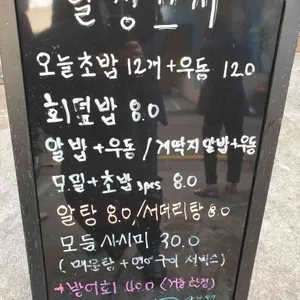 오늘초밥 12개+우동 12.0
회덮밥 8.0
알밥+우동 / 게딱지알밥+우동
모밀+초밥 3pcs 8.0
알탕 8.0/서더리탕 8.0
모듬사시미 30.0
(매운탕 + 연어구이 서비스)
+방어회 40.0